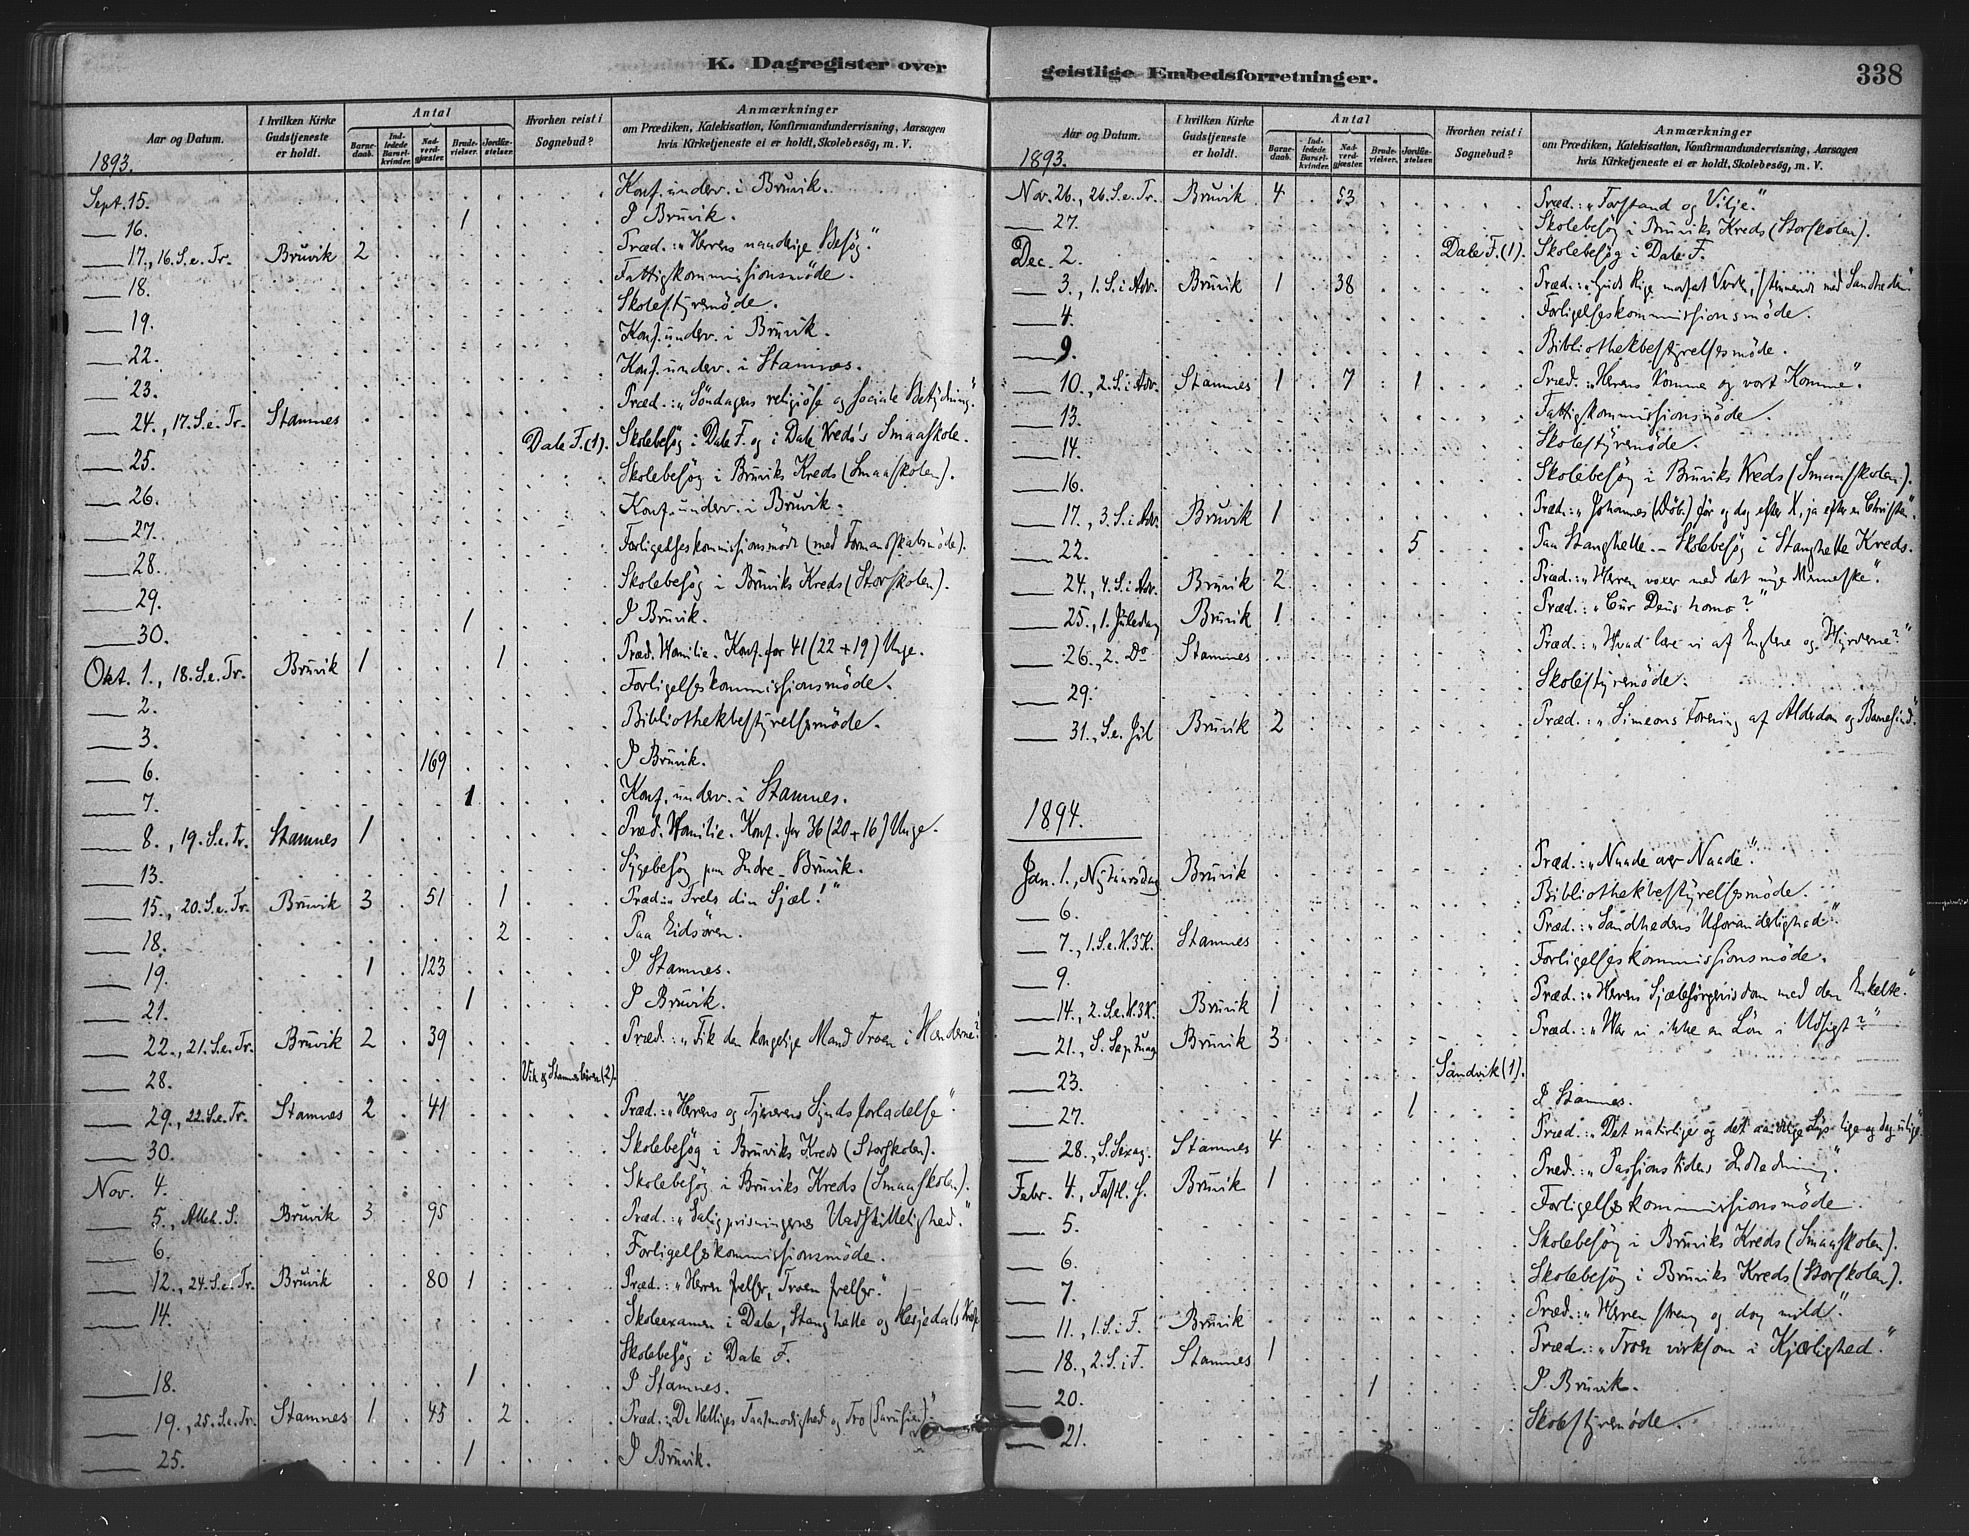 K. Dagregister over
Aar og Datum.
I hvilken Kirke Gudstjeneste er holdt.
Antal
Barnedaab.
Indledede Barselkvinder.
Nadverdgjæster.
Brudevielser.
Jordfæstelser.
Hvorhen reist i Sognebud?
Anmærkninger
om Prædiken, Katekisation, Konfirmandundervisning, Aarsagen
hvis Kirketjeneste ei er holdt, Skolebesøg, m. V.
1893.
Sept. 15. Konf. underv. i Bruvik.
16. 1 I Bruvik.
17., 16. S. e. Tr. Bruvik 2 Præd.: „Herrens naaderige Besøg."
18. Fattigkommissionsmöde.
19. Skolestyremöde.
22. Konf. underv. i Bruvik.
23. Konf. underv. i Stamnes.
24., 17. S. e. Tr. Stamnes Præd.: „Söndagens religiöse og sociale Betydning".
25. Dale F. (1). Skolebesøg i Dale F. og i Dale Kreds's Smaaskole.
26. Skolebesøg i Bruviks Kreds (Smaaskolen).
27. Konf. underv. i Bruvik.
28. Forligelseskommissionsmöde (med Formandskabsmöde).
29. Skolebesøg i Bruviks Kreds (Storskolen).
30. 1 I Bruvik.
Okt. 1., 18. S. e. Tr. Bruvik 1 1 Præd. Homilie. Konf. for 41 (22 + 19) Unge.
2. Forligelseskommissionsmöde.
3. Bibliothekbestyrelsesmöde.
6. 169 I Bruvik.
7. 1 Konf. underv. i Stamnes.
8., 19. S. e. Tr. Stamnes 1 Præd. Homilie. Konf. for 36 (20 + 16) Unge.
13. Sygebesøg paa Indre-Bruvik.
15., 20. S. e. Tr. Bruvik 3 51 1 Præd.: „Frels din Sjæl!"
18. 2 Paa Eidsören.
19. 1 123 I Stamnes.
21. 1 I Bruvik.
22., 21. S. e. Tr. Bruvik 2 39 Præd.: „Fik den kongelige Mand Troen i Hænderne?
28. Vik og (2).
29., 22. S. e. Tr. Stamnes 2 41 Præd.: „Herrens og Tjenerens Syndsforladelse".
30. Skolebesøg i Bruviks Kreds (Storskolen).
Nov. 4. Skolebesøg i Bruviks Kreds (Smaaskolen).
5., Alleh. S. Bruvik 3 95 Præd.: „Saligprisningernes Uadskillelighed."
6. Forligelseskommissionsmöde.
12., 24. S. e. Tr. Bruvik 80 1 Præd.: „Herren frelser, Troen frelser."
14. Skoleexamen i Dale, Stanghelle og Hesjedals
Skolebesøg i Dale F.
18. 1 I Stamnes.
19., 25. S. e. Tr. Stamnes 1 45 2 Præd.: „De Helliges Taalmodighed og Tro (Parusien)."
25. 1 I Bruvik.
geistlige Embedsforretninger.
338
Aar og Datum.
I hvilken Kirke Gudstjeneste er holdt.
Antal
Barnedaab.
Indledede Barselkvinder.
Nadverdgjæster.
Brudevielser.
Jordfæstelser
Hvorhen reist i Sognebud?
Anmærkninger
om Prædiken, Katekisation, Konfirmandundervisning, Aarsagen
hvis Kirketjeneste ei er holdt, Skolebesøg, m. V.
1893.
Nov. 26., 26. S. e. Tr. Bruvik 4 53 Præd.: „Forstand og Vilje."
27. Skolebesøg i Bruviks Kreds (Storskolen).
Dec. 2. Dale F. (1). Skolebesøg i Dale F.
3., 1. S. i Adv. Bruvik 1 38 Præd.: „Guds Rige modsat Verden, stemmende med Sandheden".
4. Forligelseskommissionsmöde.
9. Bibliothekbestyrelsesmöde.
10., 2. S. i Adv. Stamnes 1 7 1 Præd.: „Herrens Komme og vort Komme".
13. Fattigkommissionsmöde.
14. Skolestyremöde.
16. Skolebesøg i Bruviks Kreds (Smaaskolen).
17., 3. S. i Adv. Bruvik 1 Præd.: „Johannes (Döb.) för og dog efter X, ja efter en Christen".
22. 5 Paa Stanghelle. - Skolebesøg i Stanghelle Kreds.
24., 4. S. i Adv. Bruvik 2 Præd.: „Herren voxer med det nye Menneske".
25., 1. Juledag Bruvik 1 Præd.: „Cur Deus homo?"
26., 2. Do Stamnes Præd.: „Hvad lære vi af Englene og Hyrderne?"
29. Skolestyremöde.
31., S. e. Jul Bruvik 2 Præd.: „Simeons Forening af Alderdom og Barnesind."
1894.
Jan. 1., Nytaarsdag Bruvik Præd.: „Naade over Naade".
6. Bibliothekbestyrelsesmöde.
7., 1. S. e. H. 3 K. Stamnes Præd.: „Sandhedens Uforanderlighed".
9. Forligelseskommissionsmöde.
14., 2. S. e. H. 3 K. Bruvik 1 Præd.: „Herrens Sjælesörgervisdom med den Enkelte."
21., S. Septuag. Bruvik 3 Præd.: „Har vi ikke en Lön i Udsigt?"
23. Sandvik (1).
27. 1 I Stamnes.
28., S. Sexag. Stamnes 4 Præd.: „Det naturlige og det aandelige Lys lige og dog ulige".
Febr. 4., Fastl. S. Bruvik 1 Præd.: „Passionstidens Indledning".
5. Forligelseskommissionsmöde.
6. Skolebesøg i Bruviks Kreds (Smaaskolen).
7. Skolebesøg i Bruviks Kreds (Storskolen).
11., 1. S. i F. Bruvik Præd.: „Herren streng og dog mild".
18., 2. S. i F. Stamnes 1 Præd.: „Troen virksom i Kjærlighed."
20. 1 I Bruvik.
21. Skolestyremöde.